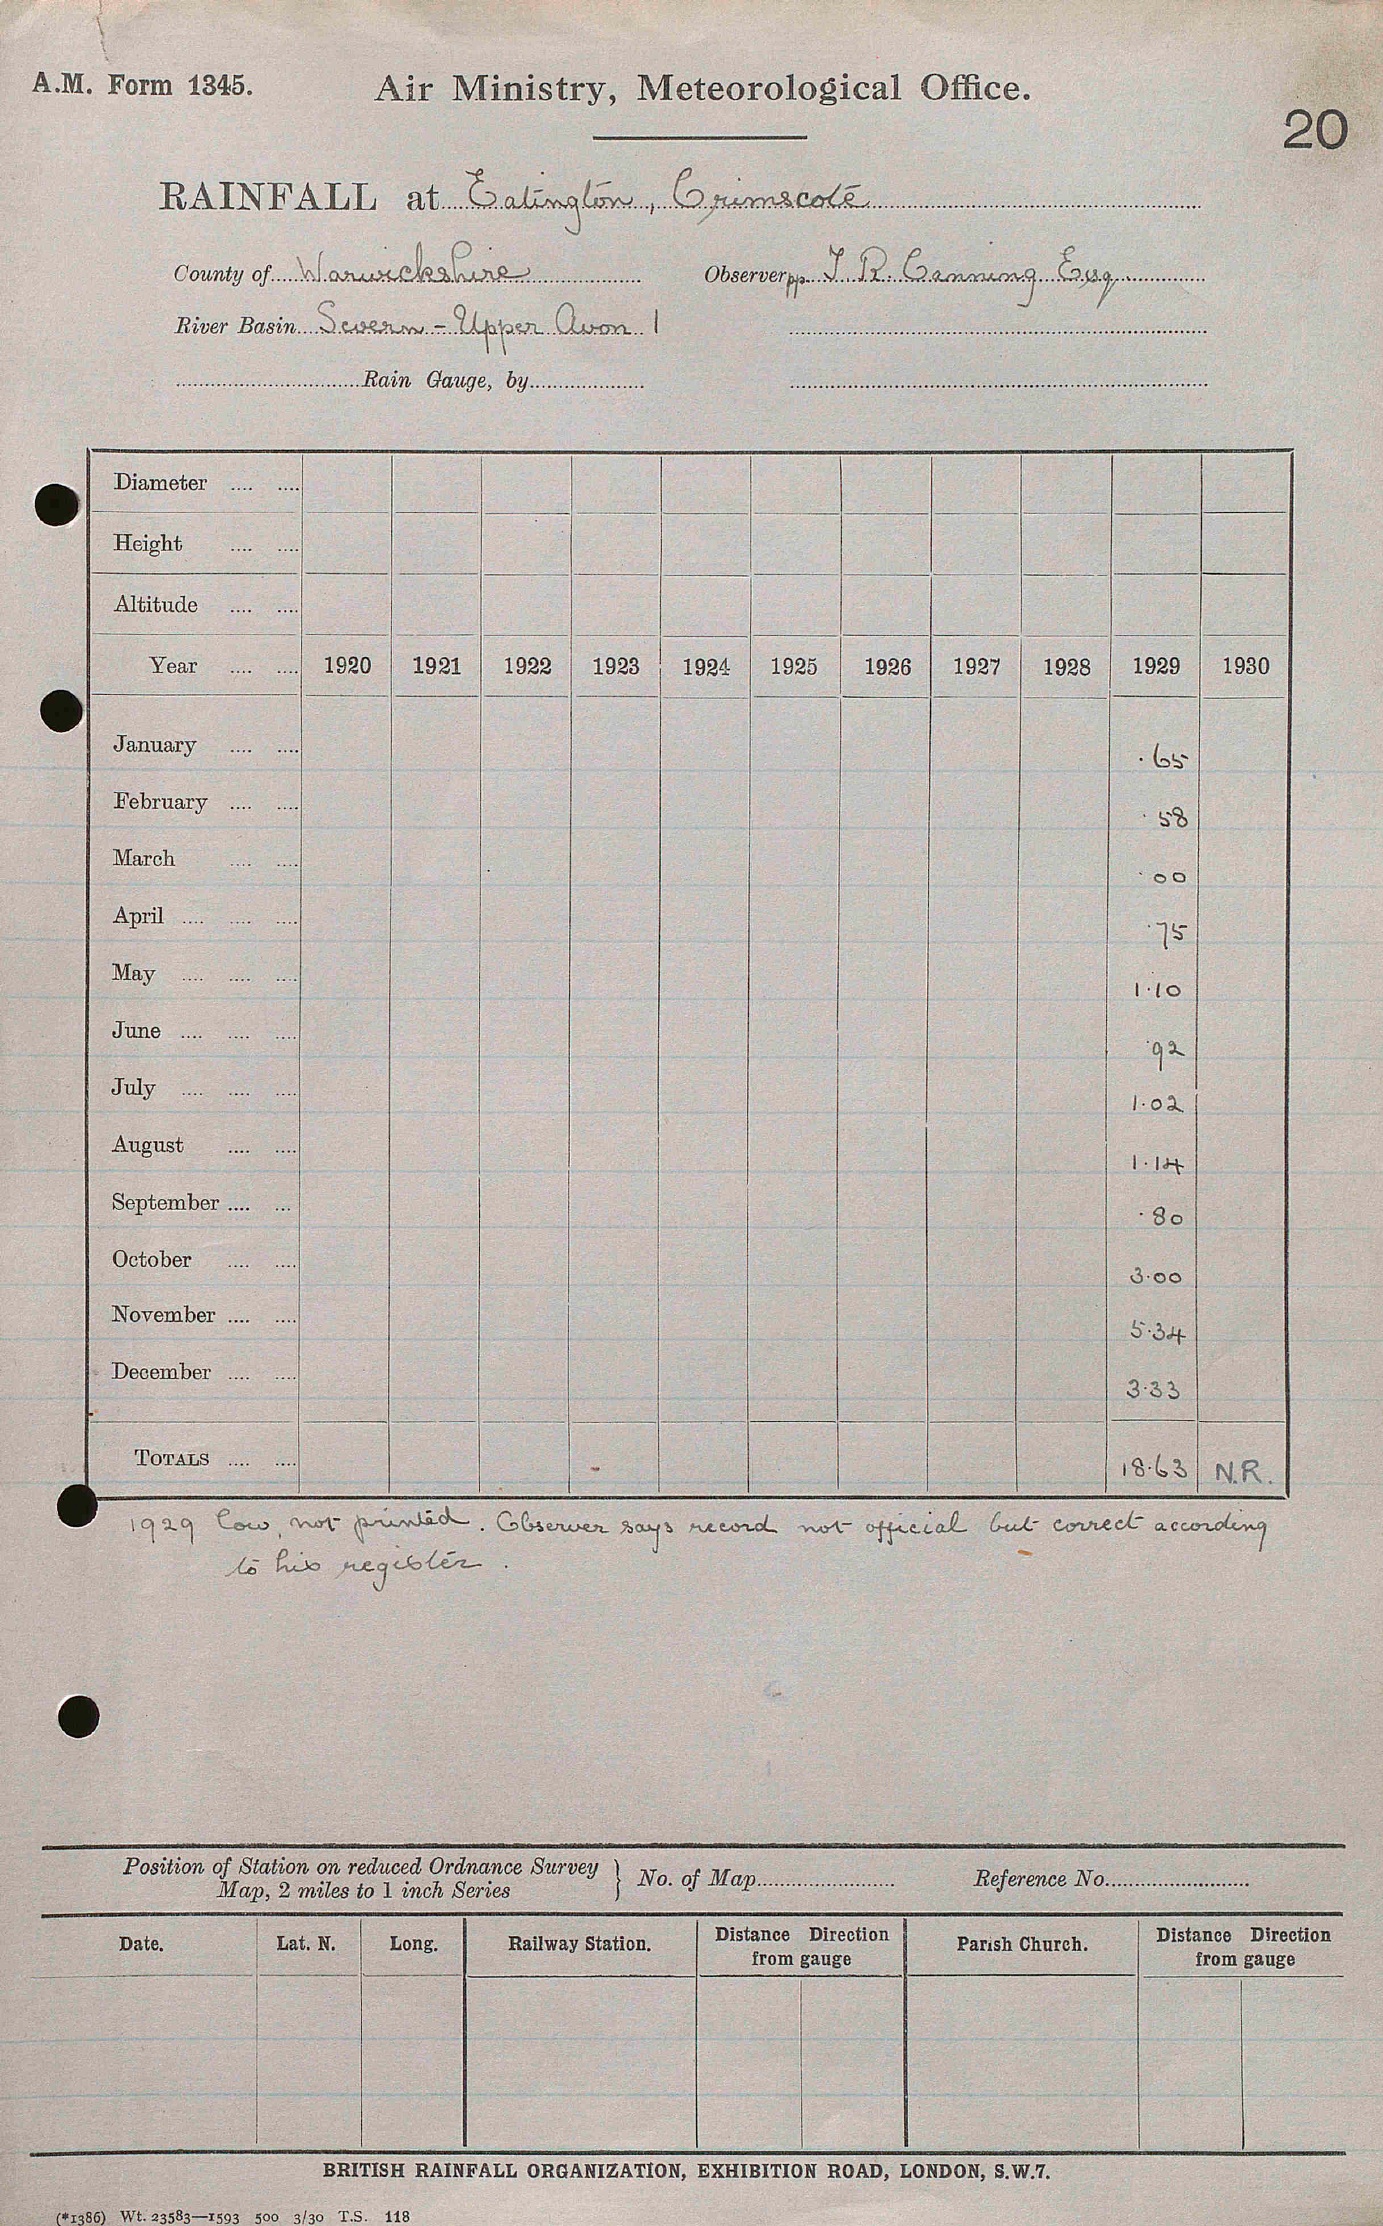 A.M. Form 1345. Air Ministry, Meteorological Office.
20
RAINFALL at Eatington, Crimscote
County of Warwickshire Observer pp. T. R. Canning Esq.
River Basin Severn - Upper Avon 1
Rain Gauge, by
Diameter .... ....
Height .... ....
Altitude .... ....
Year .... .... 1920 1921 1922 1923 1924 1925 1926 1927 1928 1929 1930
January .... .... ·65
February .... .... ·58
March .... .... ·00
April .... .... .... ·75
May .... .... .... 1·10
June .... .... .... ·92
July .... .... .... 1·02
August .... .... 1·14
September .... ... ·80
October .... .... 3·00
November .... .... 5·34
December .... .... 3·33
TOTALS .... .... 18·63 N.R.
1929 low, not printed. Observer says record not official but correct according
to his register.
Position of Station on reduced Ordnance Survey
Map, 2 miles to 1 inch Series } No. of Map Reference No.
Date. Lat. N. Long. Railway Station. Distance Direction from gauge Parish Church. Distance Direction from gauge
BRITISH RAINFALL ORGANIZATION, EXHIBITION ROAD, LONDON, S.W.7.
(*1386) Wt. 23583—1593 500 3/30 T.S. 118